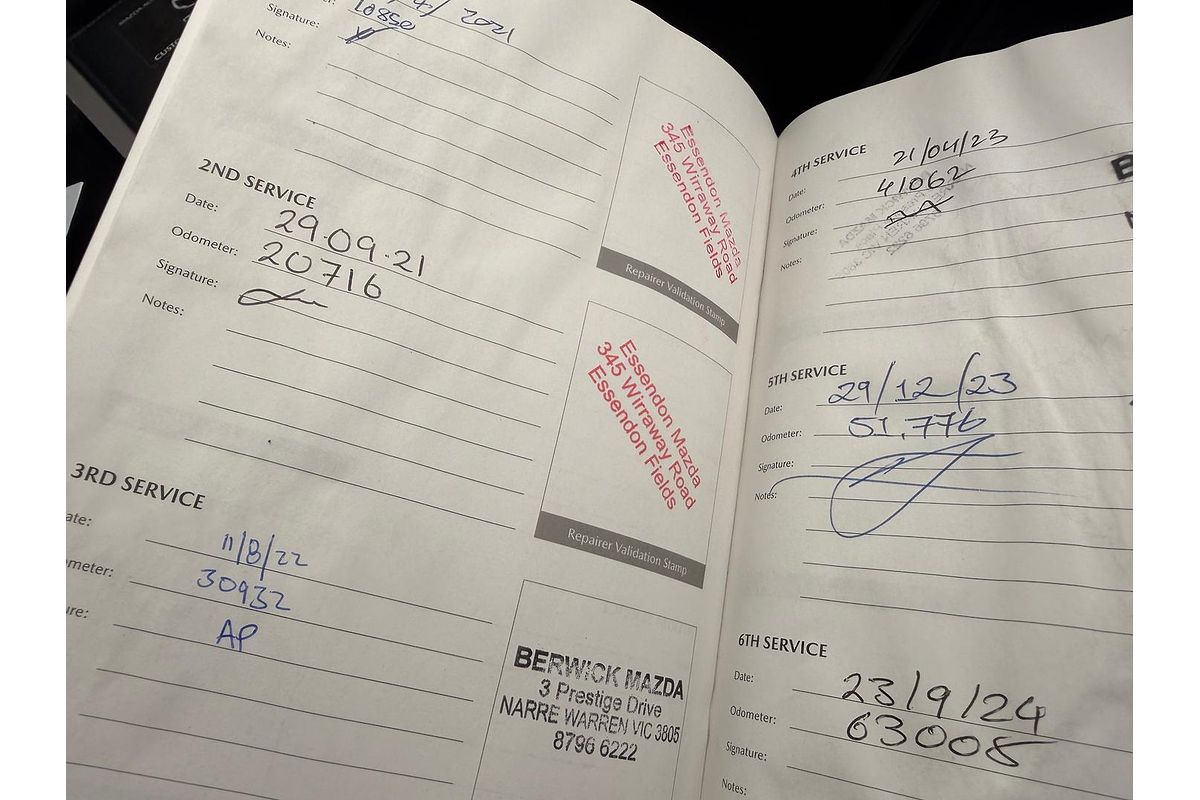 4/2021
Signature: 10850
Notes:
Essendon Mazda
345 Wirraway Road
Essendon Fields
Repairer Validation Stamp
2ND SERVICE
Date: 29.09.21
Odometer: 20716
Signature:
Notes:
Essendon Mazda
345 Wirraway Road
Essendon Fields
Repairer Validation Stamp
3RD SERVICE
ate: 11/8/22
meter: 30932
ure: AP
BERWICK MAZDA
3 Prestige Drive
NARRE WARREN VIC 3805
8796 6222
4TH SERVICE
Date: 21/04/23
Odometer: 41062
Signature:
Notes:
5TH SERVICE
Date: 29/12/23
Odometer: 51,776
Signature:
Notes:
6TH SERVICE
Date: 23/9/24
Odometer: 63008
Signature:
Notes: